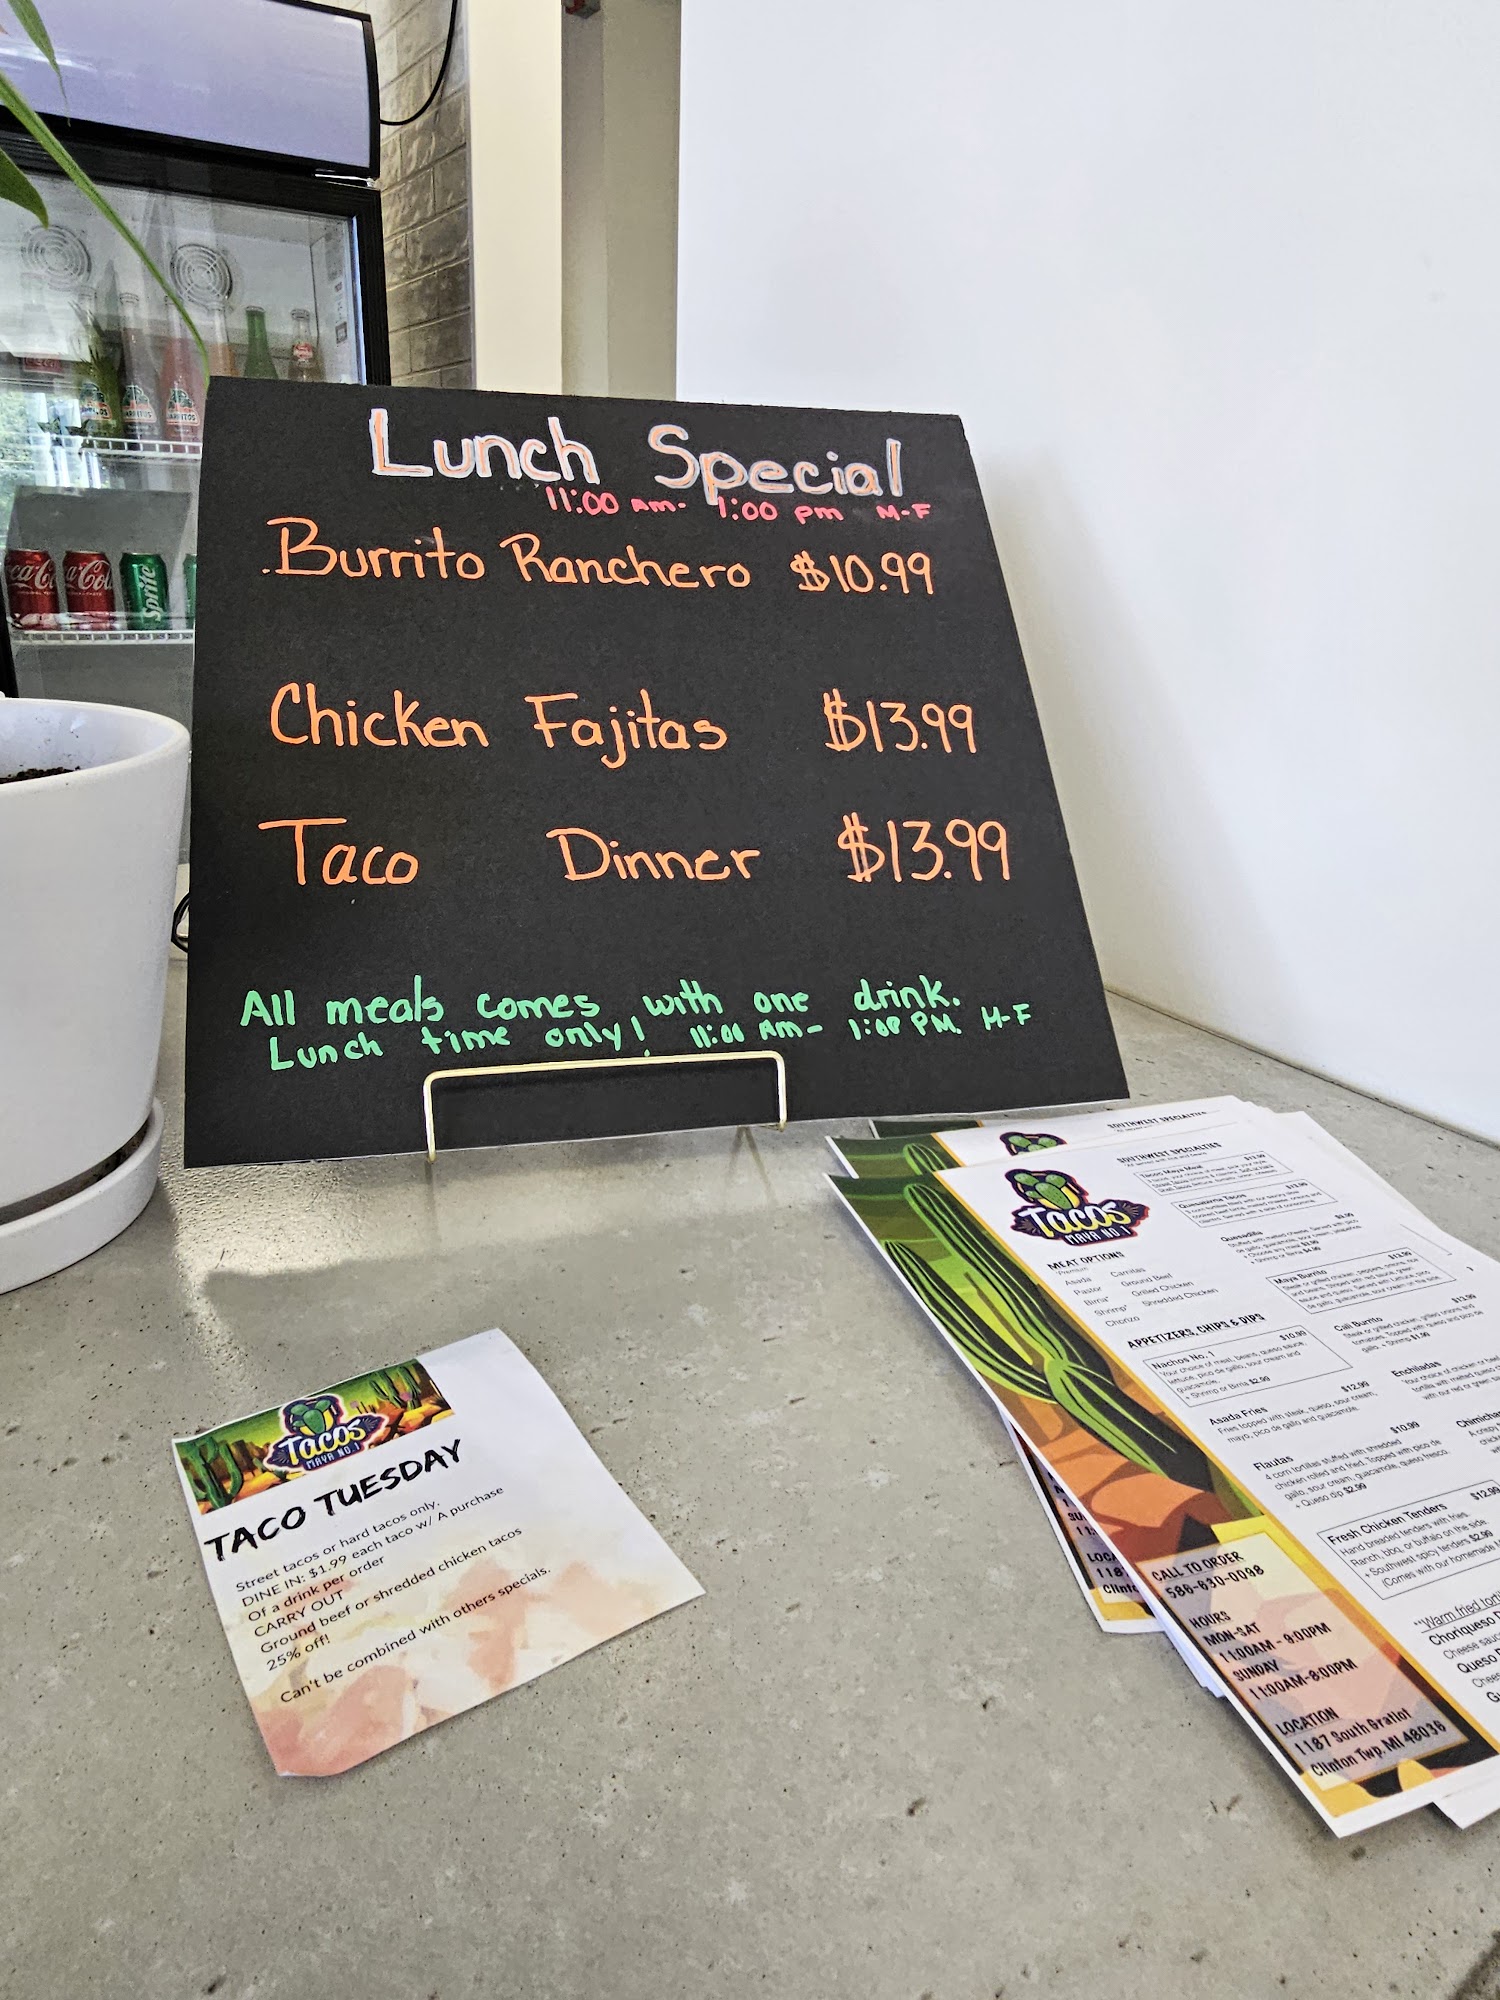 Lunch Special
11:00 am- 1:00 pm M-F
Burrito Ranchero $10.99
Chicken Fajitas $13.99
Taco Dinner $13.99
All meals comes with one drink.
Lunch time only! 11:00 Am- 1:00 PM. M-F
Coca-Cola
Sprite
Tacos
MAYA NO. 1
TACO TUESDAY
Street tacos or hard tacos only.
DINE IN: $1.99 each taco w/ A purchase
Of a drink per order
CARRY OUT
Ground beef or shredded chicken tacos
25% off!
Can't be combined with others specials.
SOUTHWEST SPECIALTIES
Tacos
MAYA NO. 1
MEAT OPTIONS
Premium
Asada Carnitas
Pastor Ground Beef
Birria* Grilled Chicken
Shrimp* Shredded Chicken
Chorizo
APPETIZERS, CHIPS & DIPS
Nachos No. 1 $10.99
Your choice of meat, beans, queso sauce,
lettuce, pico de gallo, sour cream and
guacamole.
+ Shrimp or Birria $2.99
Asada Fries $12.99
Fries topped with steak, queso, sour cream,
mayo, pico de gallo and guacamole.
Flautas $10.99
4 corn tortillas stuffed with shredded
chicken rolled and fried. Topped with pico de
gallo, sour cream, guacamole, queso fresco.
+ Queso dip $2.99
Fresh Chicken Tenders $12.99
Hand breaded tenders with fries.
Ranch, bbq, or buffalo on the side.
+ Southwest spicy tenders $2.99
(Comes with our homemade
**Warm fried
Choriqueso
Cheese
Queso
SOUTHWEST SPECIALTIES
All served with rice and beans
Tacos Maya Meal $13.99
Quesabirria Tacos
Quesadilla $9.99
Maya Burrito $13.99
Cali Burrito $13.99
Steak or grilled chicken, grilled onions and
tomatoes. Topped with queso and pico de
gallo. + Shrimp $1.99
Enchiladas
CALL TO ORDER
586-630-0098
HOURS
MON-SAT
11:00AM - 9:00PM
SUNDAY
11:00AM-8:00PM
LOCATION
1187 South Gratiot
Clinton Twp. MI 48036